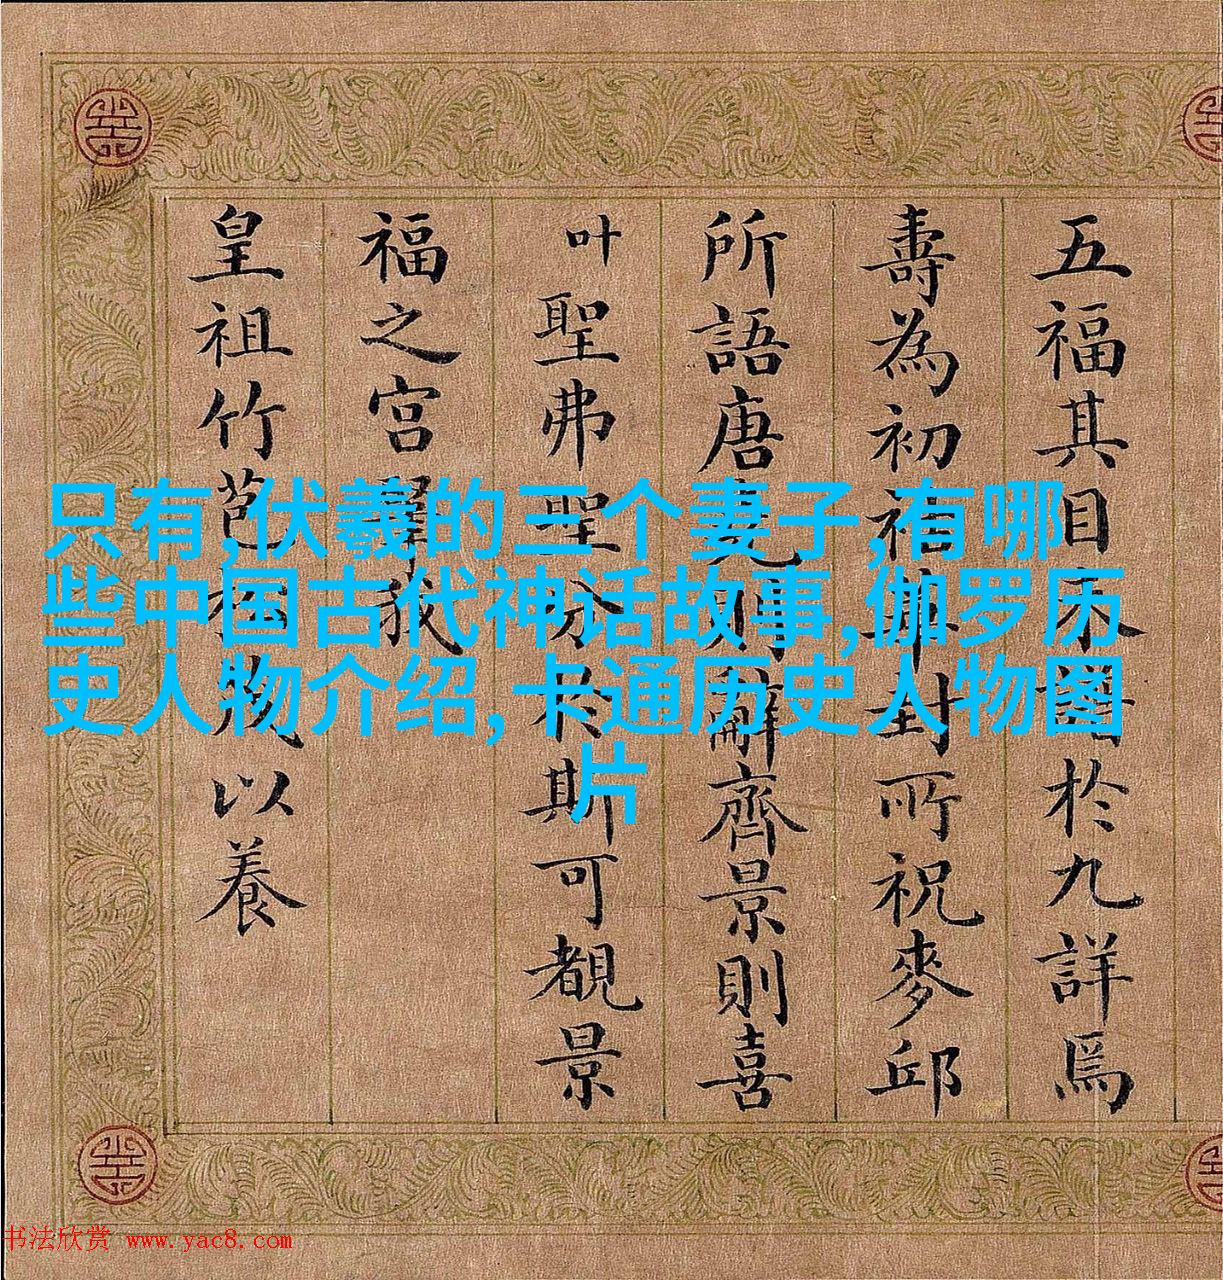 五福其目於九詳焉
壽為初禧華封所祝麥邱
所語唐堯則辭齊景則喜
叶聖弗聖分於斯可覩景
福之宮我
皇祖竹苞松茂以養
只有,伏羲的三个妻子,有哪
些中国古代神话故事,伽罗历
史人物介绍,卡通历史人物图
片
书法欣赏 www.yac8.com